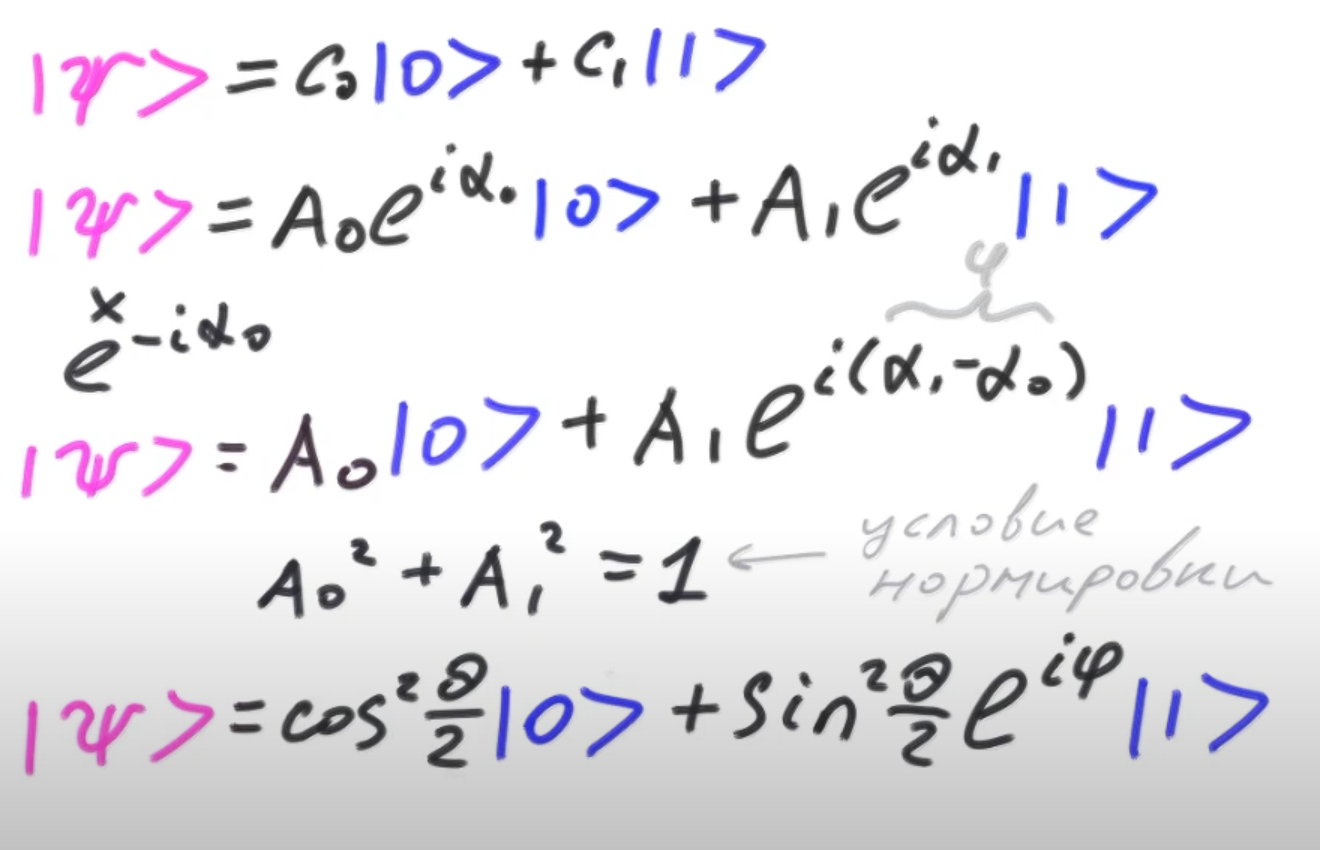 |ψ> = C₀|0> + C₁|1>
|ψ> = A₀e^{iα₀}|0> + A₁e^{iα₁}|1>
×
e^{-iα₀}
φ
|ψ> = A₀|0> + A₁e^{i(α₁-α₀)}|1>
A₀² + A₁² = 1 ← условие
нормировки
|ψ> = cos² θ/2 |0> + sin² θ/2 e^{iφ}|1>